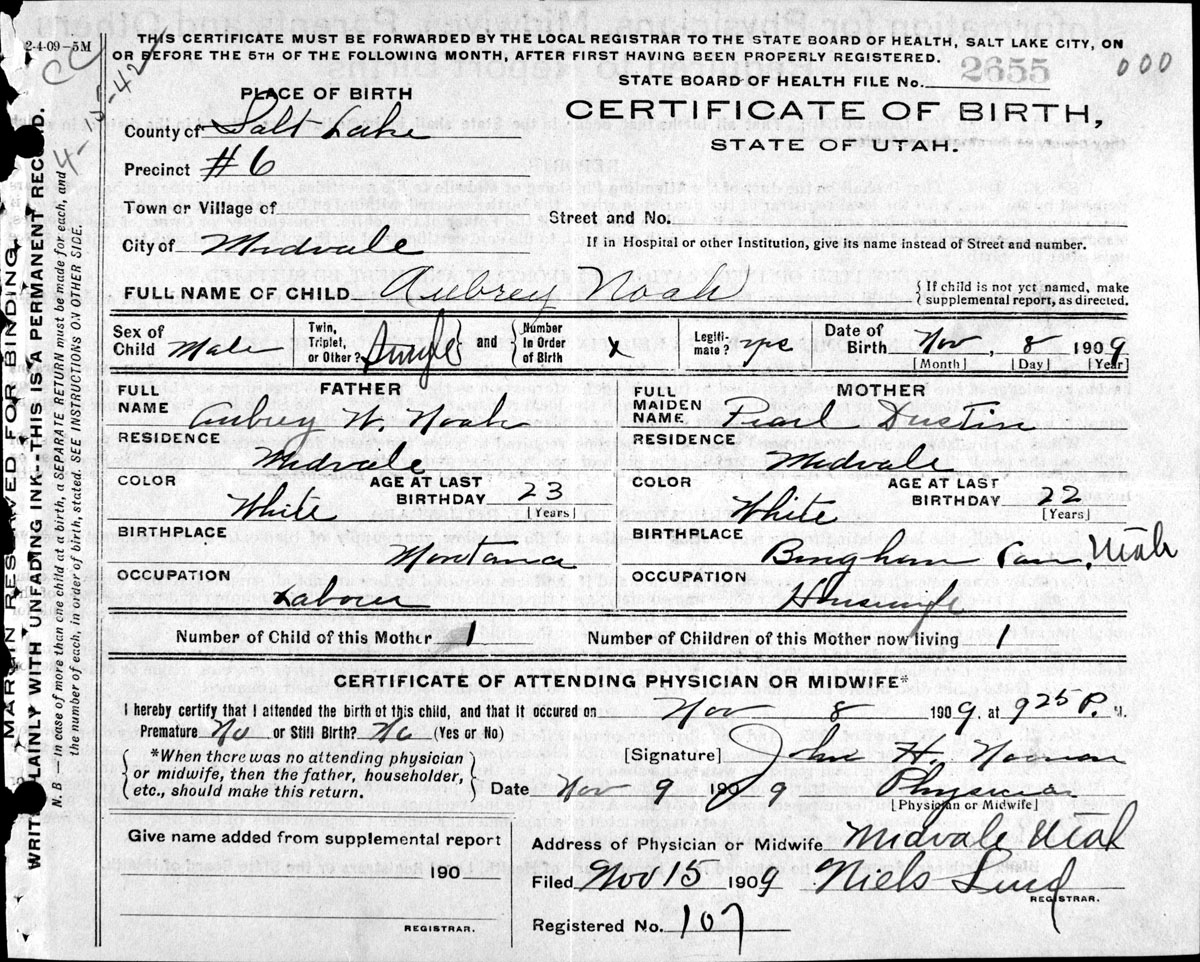 2-4-09-5M
THIS CERTIFICATE MUST BE FORWARDED BY THE LOCAL REGISTRAR TO THE STATE BOARD OF HEALTH, SALT LAKE CITY, ON
OR BEFORE THE 5TH OF THE FOLLOWING MONTH, AFTER FIRST HAVING BEEN PROPERLY REGISTERED.
2655
000
STATE BOARD OF HEALTH FILE No.
4-15-42
PLACE OF BIRTH
CERTIFICATE OF BIRTH,
STATE OF UTAH.
County of Salt Lake
Precinct #6
Town or Village of
Street and No.
City of Midvale
If in Hospital or other Institution, give its name instead of Street and number.
FULL NAME OF CHILD Aubrey Noah
{If child is not yet named, make supplemental report, as directed.
Sex of Child Male
Twin, Triplet, or Other? Single} and {Number in Order of Birth x
Legiti-mate? yes
Date of Birth Nov, 8 1909
[Month] [Day] [Year]
FATHER
MOTHER
FULL NAME Aubrey W. Noah
FULL MAIDEN NAME Pearl Dustin
RESIDENCE Midvale
RESIDENCE Midvale
COLOR White
AGE AT LAST BIRTHDAY 23 [Years]
COLOR White
AGE AT LAST BIRTHDAY 22 [Years]
BIRTHPLACE Montana
BIRTHPLACE Bingham Can, Utah
OCCUPATION Laborer
OCCUPATION Housewife
Number of Child of this Mother 1
Number of Children of this Mother now living 1
CERTIFICATE OF ATTENDING PHYSICIAN OR MIDWIFE*
I hereby certify that I attended the birth of this child, and that it occured on Nov 8 1909, at 9 25 P. M.
Premature No or Still Birth? No (Yes or No)
{*When there was no attending physician or midwife, then the father, householder, etc., should make this return.}
[Signature] John H. Noonan
Date Nov 9 1909
Physician
[Physician or Midwife]
Give name added from supplemental report
190
REGISTRAR.
Address of Physician or Midwife Midvale Utah
Filed Nov 15 1909 Niels Lind
REGISTRAR.
Registered No. 107
MARGIN RESERVED FOR BINDING.
WRITE PLAINLY WITH UNFADING INK--THIS IS A PERMANENT RECORD.
N.B.—In case of more than one child at a birth, a SEPARATE RETURN must be made for each, and
the number of each, in order of birth, stated. SEE INSTRUCTIONS ON OTHER SIDE.